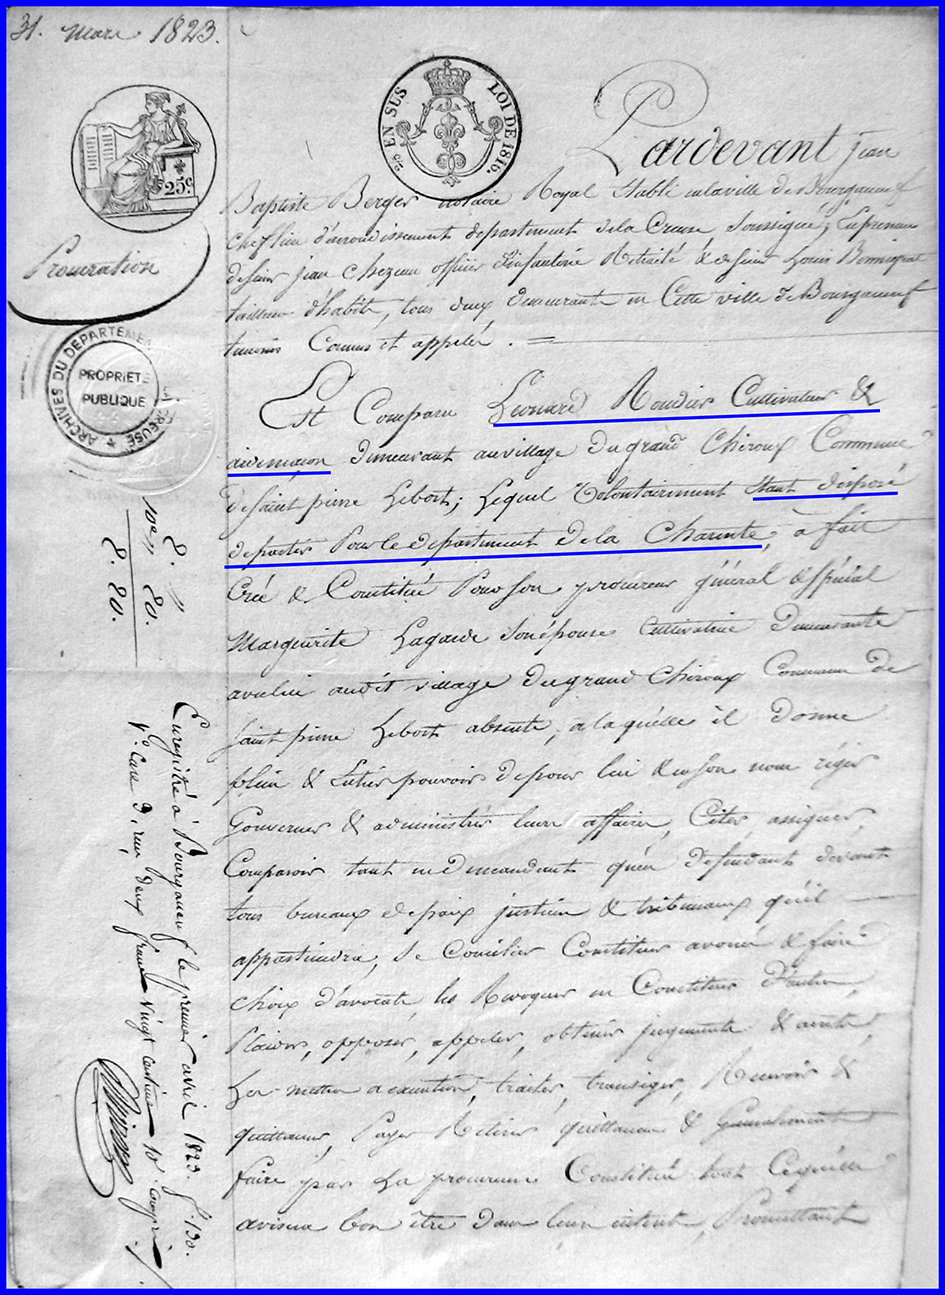 31. mars 1823.
25c
2/10 EN SUS LOI DE 1816.
Procuration
ARCHIVES DU DEPARTEMENT CREUSE
PROPRIETE
PUBLIQUE
Pardevant jean
Baptiste Berger notaire Royal Etabli en la ville de Bourganeuf
chef lieu d'arrondissement departement de la Creuse Soussigné; En presence
de Sieur jean Chezeau officier d'infanterie Retraité & de Sieur Louis
tailleur d'habits, tous deux demeurant en Cette ville de Bourganeuf
temoins Connus et appelés.
Est Comparu Léonard Roudier Cultivateur &
demeurant au village du grand Chiroux Commune
de Saint pierre Lebost; Lequel Volontairement Etant disposé
de partir Pour le departement de la Charente, à fait
Créé & Constitué Pour Son procureur général & spécial
Marguerite Lagarde Son épouse Cultivatrice Demeurante
avec lui audit village du grand Chiroux Commune de
Saint pierre Lebost absente, a laquelle il Donne
plein & Entier pouvoir de pour lui & en Son nom régir
Gouverner & administrer leurs affaires, Citer, assigner,
Comparoir tant en demandant qu'en defendant devant
tous bureaux de paix justice & tribunaux qu'il
appartiendra, Se Concilier Constituer avoués & faire
choix d'avocats, les Revoquer en Constituer D'autres,
Plaider, opposer, appeler, obtenir jugements &
Les mettre a execution, traiter, transiger, Recevoir &
quittancer, Payer Retirer quittances & Generalement
faire par La procureure Constituée tout Ce qu'elle
avisera bon être dans leurs interets, Promettant
8. "
10e " 80.
8. 80.
Enregistré à Bourganeuf le premier avril 1823. f° 130.
V° Case 9, reçu deux francs Vingt centimes 10e compris